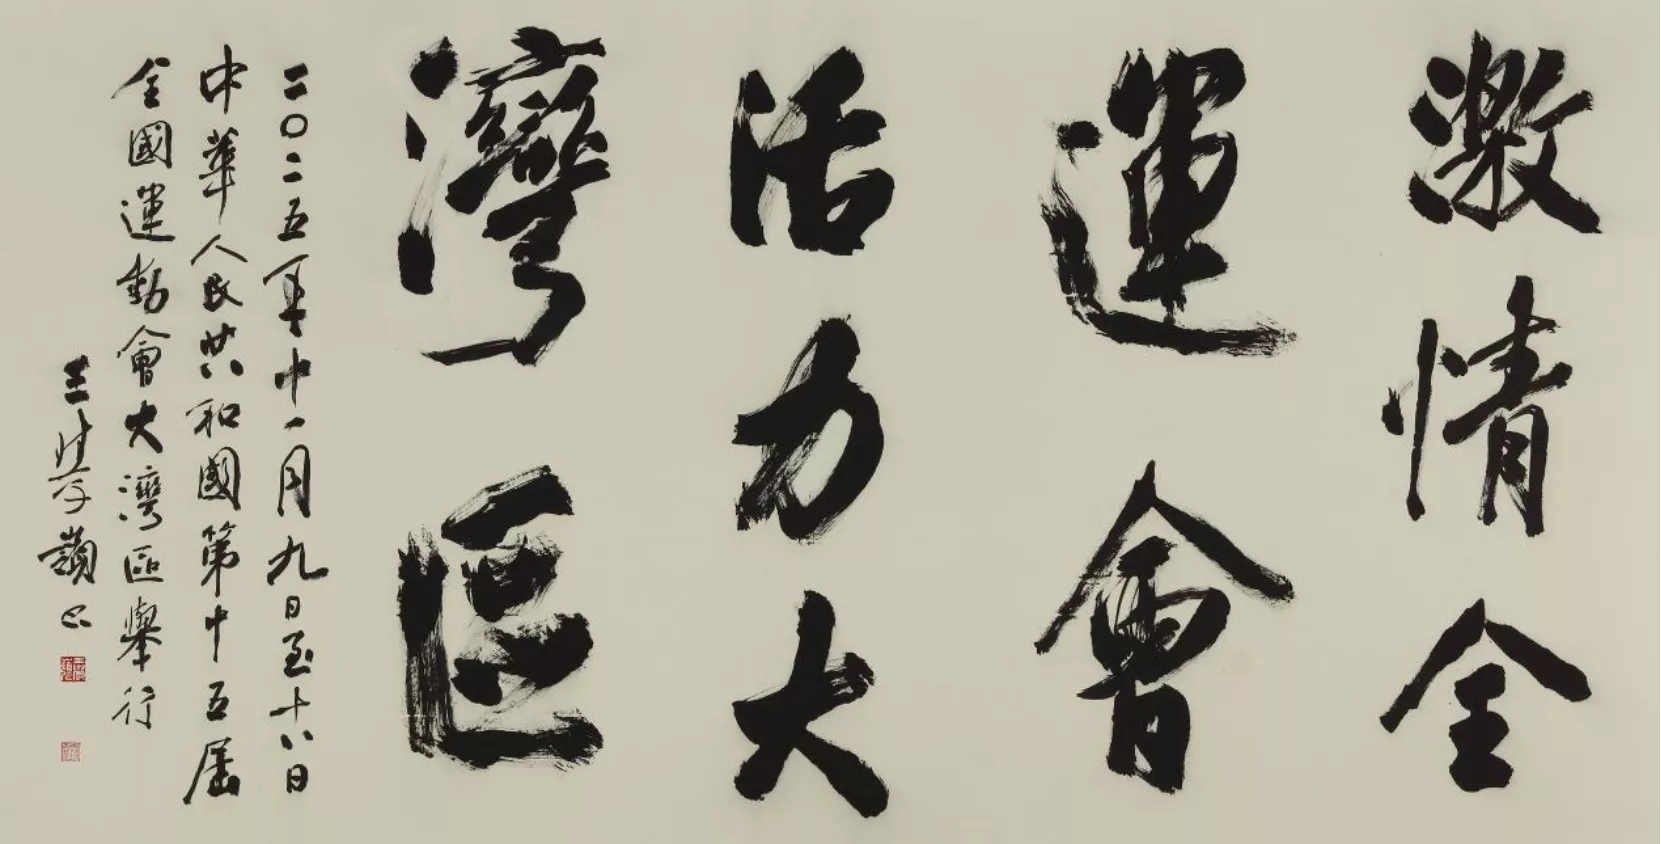 激情全
運會
活力大
灣區
二〇二五年十一月九日至十八日
中華人民共和國第十五屆
全國運動會大灣區舉行
王學嶺書